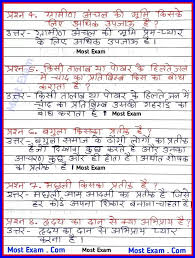 प्रश्न 4. ग्रामीण अंचल की भूमि किसके
लिए अधिक उपजाऊ है ?
उत्तर- ग्रामीण अंचल की भूमि प्रेम-प्यार
के लिए अधिक उपजाऊ है।
Most Exam
प्रश्न 5. किसी तालाब या पोखर के हिलते जल
में चाँद का प्रतिबिम्ब किस का बोध
कराता है ?
उत्तर- किसी तालाब या पोखर के हिलते जल में
चाँद का प्रतिबिम्ब उसकी गहराई का
बोध कराता है। Most Exam . Com
प्रश्न 6. बगुला किसका प्रतीक है ?
उत्तर- बगुला समाज के उन लोगों का प्रतीक
है और
शोषक
का प्रतीक है। Most Exam . Com
प्रश्न 7. मछली किसका प्रतीक है ?
उत्तर- मछली आम आदमी का प्रतीक है जिसे
हर कोई अपना शिकार बनाना चाहता है
Most Exam . Com Most Exam . Com
प्रश्न 8. हृदय का दान से क्या अभिप्राय है ?
उत्तर- हृदय का दान से अभिप्राय प्रेम
Most Exam . Com